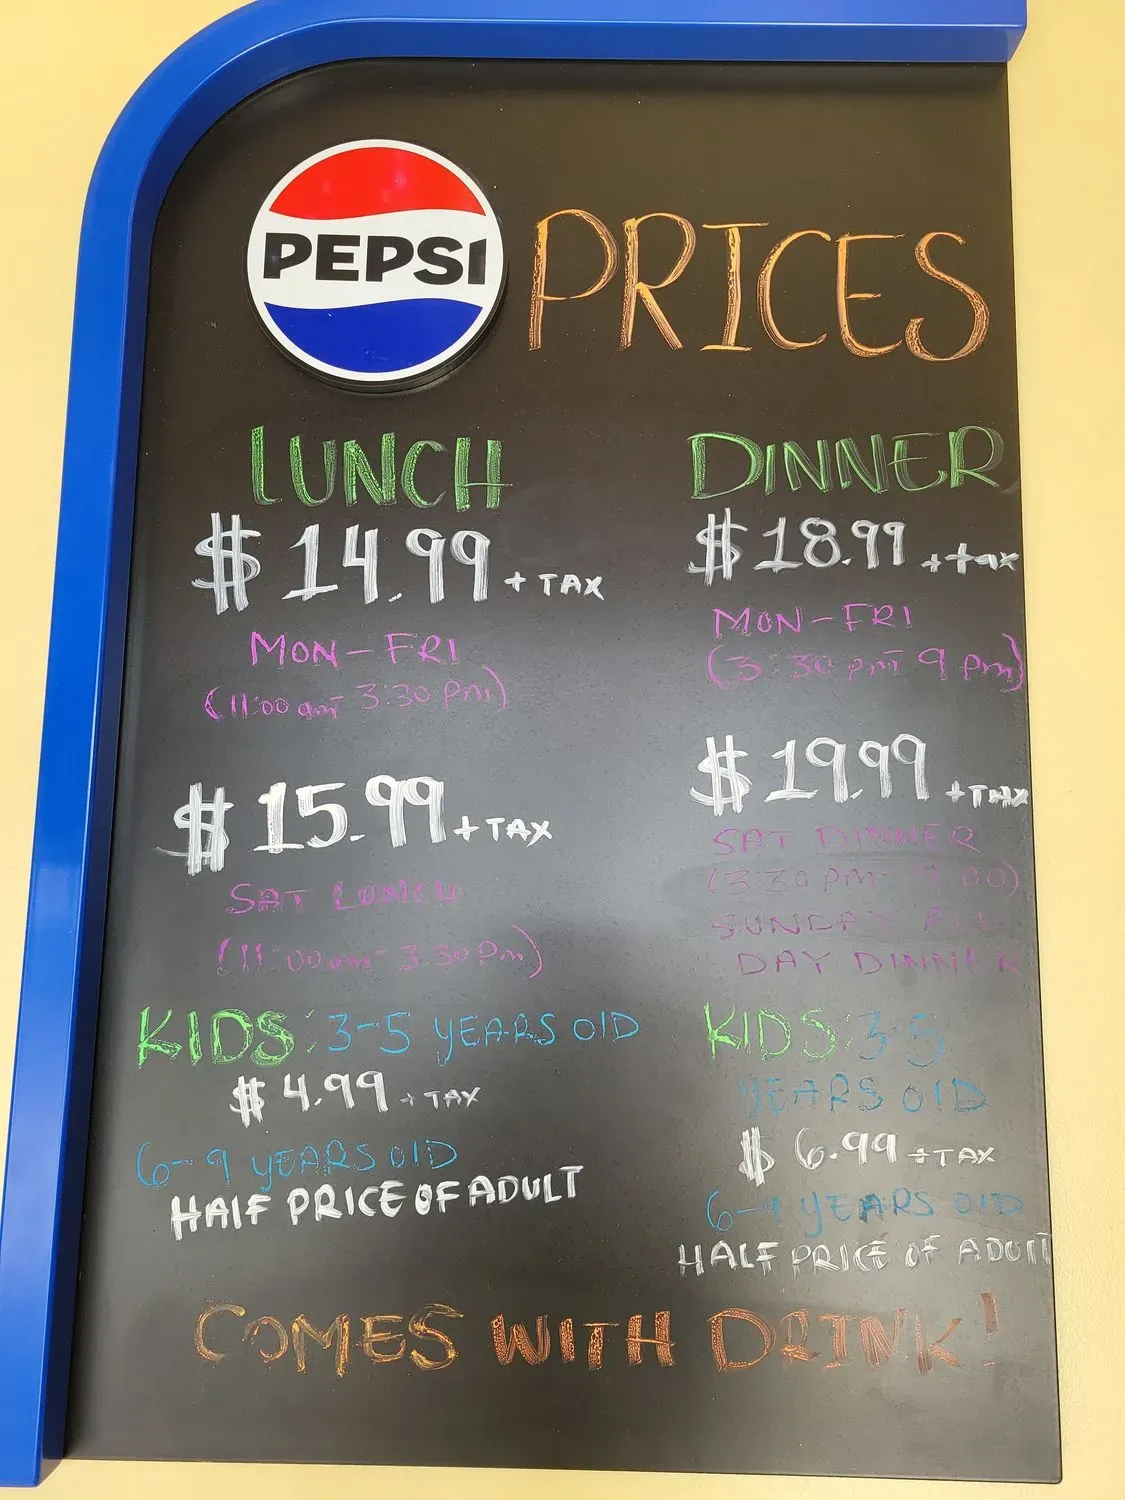 PEPSI PRICES
LUNCH
$14.99 + TAX
MON-FRI
(11:00am-3:30pm)
$15.99 + TAX
SAT LUNCH
(11:00am-3:30pm)
KIDS: 3-5 YEARS OlD
$4.99 + TAX
6-9 YEARS OlD
HAlF PRICE OF ADULT
DINNER
$18.99 + tax
MON-FRI
(3:30pm-9pm)
$19.99 + TAX
SAT DINNER
(3:30pm-9:00)
SUNDAY ALL
DAY DINNER
KIDS: 3-5
YEARS OlD
$6.99 + TAX
6-9 YEARS OlD
HALF PRICE OF ADUlT
COMES WITH DRINK!